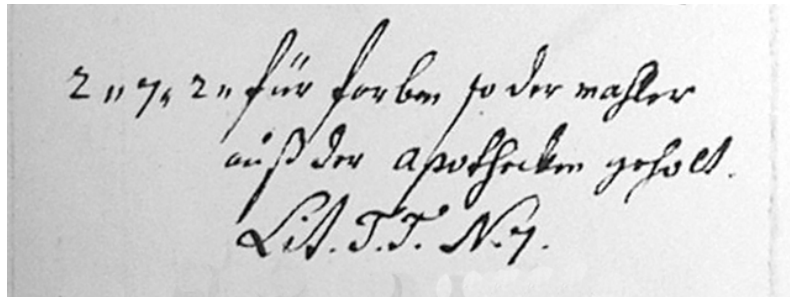 2 „ 7 „ 2 „ für farben so der mahler
auß der apothecken geholt.
Lit. T.T. N. 7.